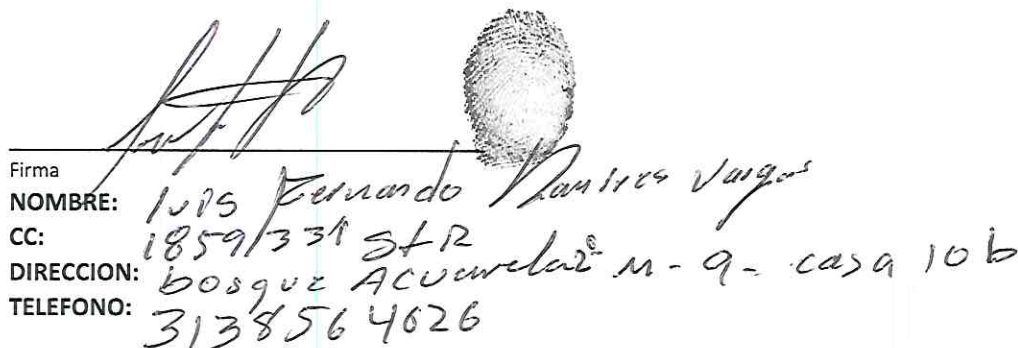 Firma
NOMBRE: luis Fernando Ramires Vargas
CC: 18591331 StR
DIRECCION: bosque Acuarela M-9- casa 10b
TELEFONO: 3138564626